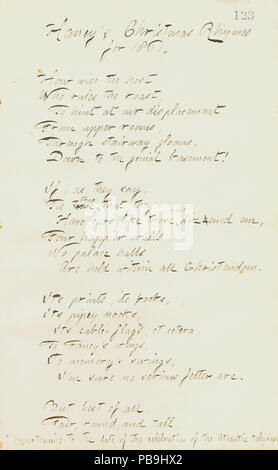 123
Haney's, Christmas Rhymes
for 1861.
How wise the host
Who rules the roast,
To hint at our displacement
From upper rooms,
Through stairway glooms,
Down to the genial basement!
If, as they say,
Tis true that they
Have who like have diz ened em,
Four happier walls
No palace halls
Are held within all Christendom.
Its prints, its books,
Its pipey nooks,
Its cable-flags et cetera,
To Fancy's wings,
To memory's swings,
I'm sure no serious fetter are.
But best of all
Fair, round, and tall
appertaining to the date of the celebration of the Atlantic telegraph
alamy
PB9HX2